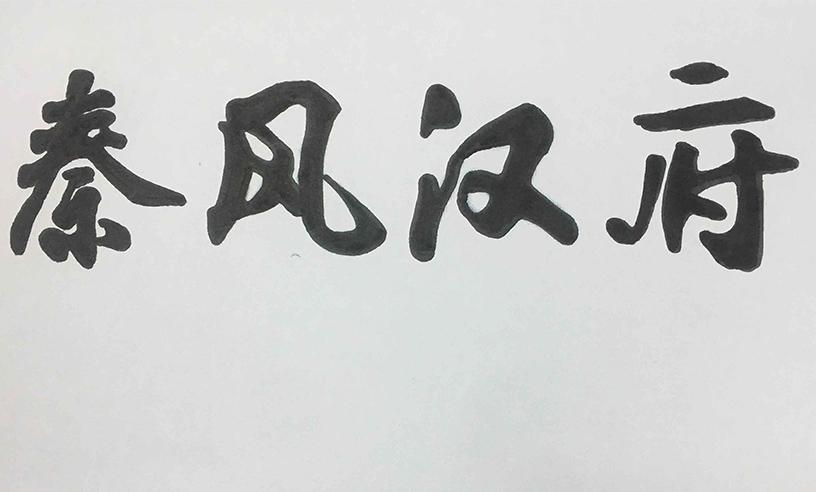 秦风汉府